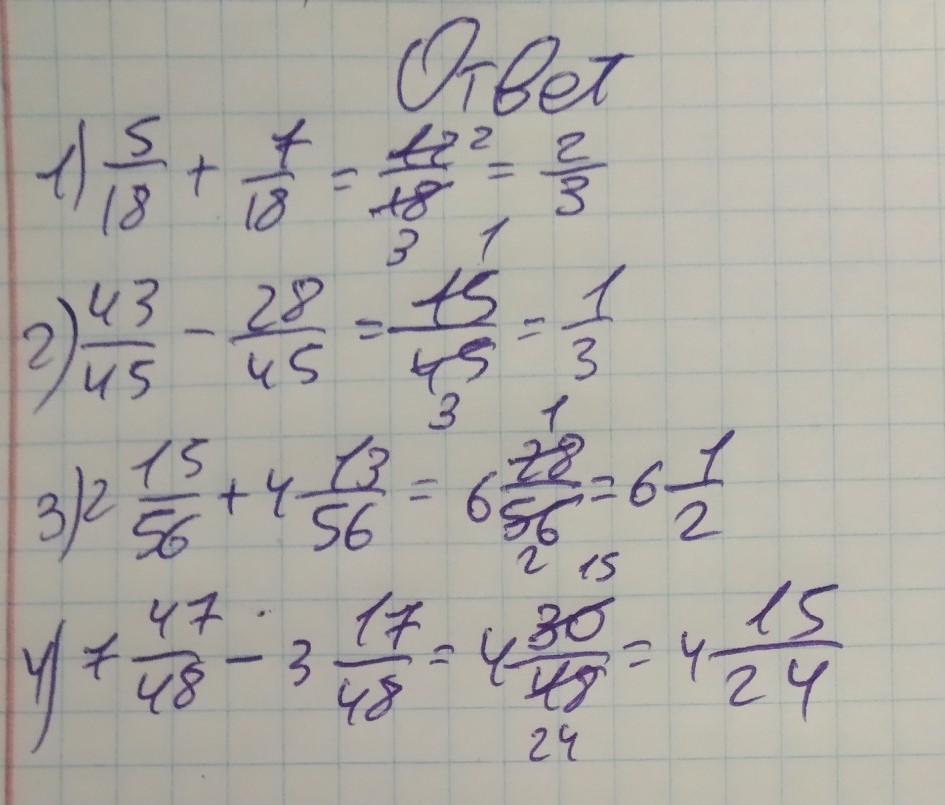 Ответ
1) 5/18 + 7/18 = 12/18 2 3 = 2/3
2) 43/45 - 28/45 = 15/45 1 3 = 1/3
3) 2 15/56 + 4 13/56 = 6 28/56 1 2 = 6 1/2
4) 7 47/48 - 3 17/48 = 4 30/48 15 24 = 4 15/24